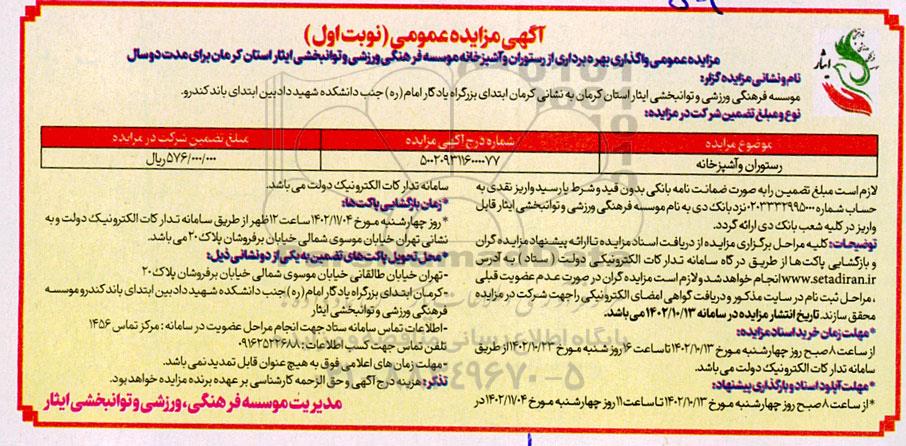 آگهی مزایده عمومی (نوبت اول)
مزایده عمومی واگذاری بهره برداری از رستوران و آشپزخانه موسسه فرهنگی ورزشی و توانبخشی ایثار استان کرمان برای مدت دو سال
نام و نشانی مزایده گزار:
موسسه فرهنگی ورزشی و توانبخشی ایثار استان کرمان به نشانی کرمان ابتدای بزرگراه یادگار امام (ره) جنب دانشکده شهید دادبین ابتدای باند کندرو.
نوع و مبلغ تضمین شرکت در مزایده:
ایثار
موضوع مزایده
شماره درج آگهی مزایده
مبلغ تضمین شرکت در مزایده
رستوران و آشپزخانه
۵۰۰۲۰۹۳۱۱۶۰۰۰۰۷۷
۵۷۶/۰۰۰/۰۰۰ ریال
لازم است مبلغ تضمین را به صورت ضمانت نامه بانکی بدون قید و شرط یا رسید واریز نقدی به
حساب شماره ۰۲۰۳۳۳۲۹۹۵۰۰۰ نزد بانک دی به نام موسسه فرهنگی ورزشی و توانبخشی ایثار قابل
واریز در کلیه شعب بانک دی ارائه گردد.
توضیحات: کلیه مراحل برگزاری مزایده از دریافت اسناد مزایده تا ارائه پیشنهاد مزایده گران
و بازگشایی پاکت ها از طریق درگاه سامانه تدارکات الکترونیکی دولت (ستاد) به آدرس
www.setadiran.ir انجام خواهد شد و لازم است مزایده گران در صورت عدم عضویت قبلی
، مراحل ثبت نام در سایت مذکور و دریافت گواهی امضای الکترونیکی را جهت شرکت در مزایده
محقق سازند. تاریخ انتشار مزایده در سامانه ۱۴۰۲/۱۰/۱۳ می باشد.
*مهلت زمان خرید اسناد مزایده:
از ساعت ۸ صبح روز چهارشنبه مورخ ۱۴۰۲/۱۰/۱۳ تا ساعت ۱۶ روز شنبه مورخ ۱۴۰۲/۱۰/۲۳ از طریق
سامانه تدارکات الکترونیک دولت می باشد.
*مهلت آپلود اسناد و بارگذاری پیشنهاد:
*از ساعت ۸ صبح روز چهارشنبه مورخ ۱۴۰۲/۱۰/۱۳ تا ساعت ۱۱ روز چهارشنبه مورخ ۱۴۰۲/۱۱/۰۴ در
سامانه تدارکات الکترونیک دولت می باشد.
*زمان بازگشایی پاکت ها:
*روز چهارشنبه مورخ ۱۴۰۲/۱۱/۰۴ ساعت ۱۲ ظهر از طریق سامانه تدارکات الکترونیک دولت و به
نشانی تهران خیابان موسوی شمالی خیابان برفروشان پلاک ۲۰ می باشد.
*محل تحویل پاکت های تضمین به یکی از دو نشانی ذیل:
-تهران خیابان طالقانی خیابان موسوی شمالی خیابان برفروشان پلاک ۲۰
-کرمان ابتدای بزرگراه یادگار امام (ره) جنب دانشکده شهید دادبین ابتدای باند کندرو موسسه
فرهنگی ورزشی و توانبخشی ایثار
-اطلاعات تماس سامانه ستاد جهت انجام مراحل عضویت در سامانه : مرکز تماس ۱۴۵۶
تلفن تماس جهت کسب اطلاعات : ۰۹۱۶۲۵۲۲۶۸۸
-مهلت زمان های اعلامی فوق به هیچ عنوان قابل تمدید نمی باشد.
تذکر: هزینه درج آگهی و حق الزحمه کارشناسی بر عهده برنده مزایده خواهد بود.
مدیریت موسسه فرهنگی، ورزشی و توانبخشی ایثار